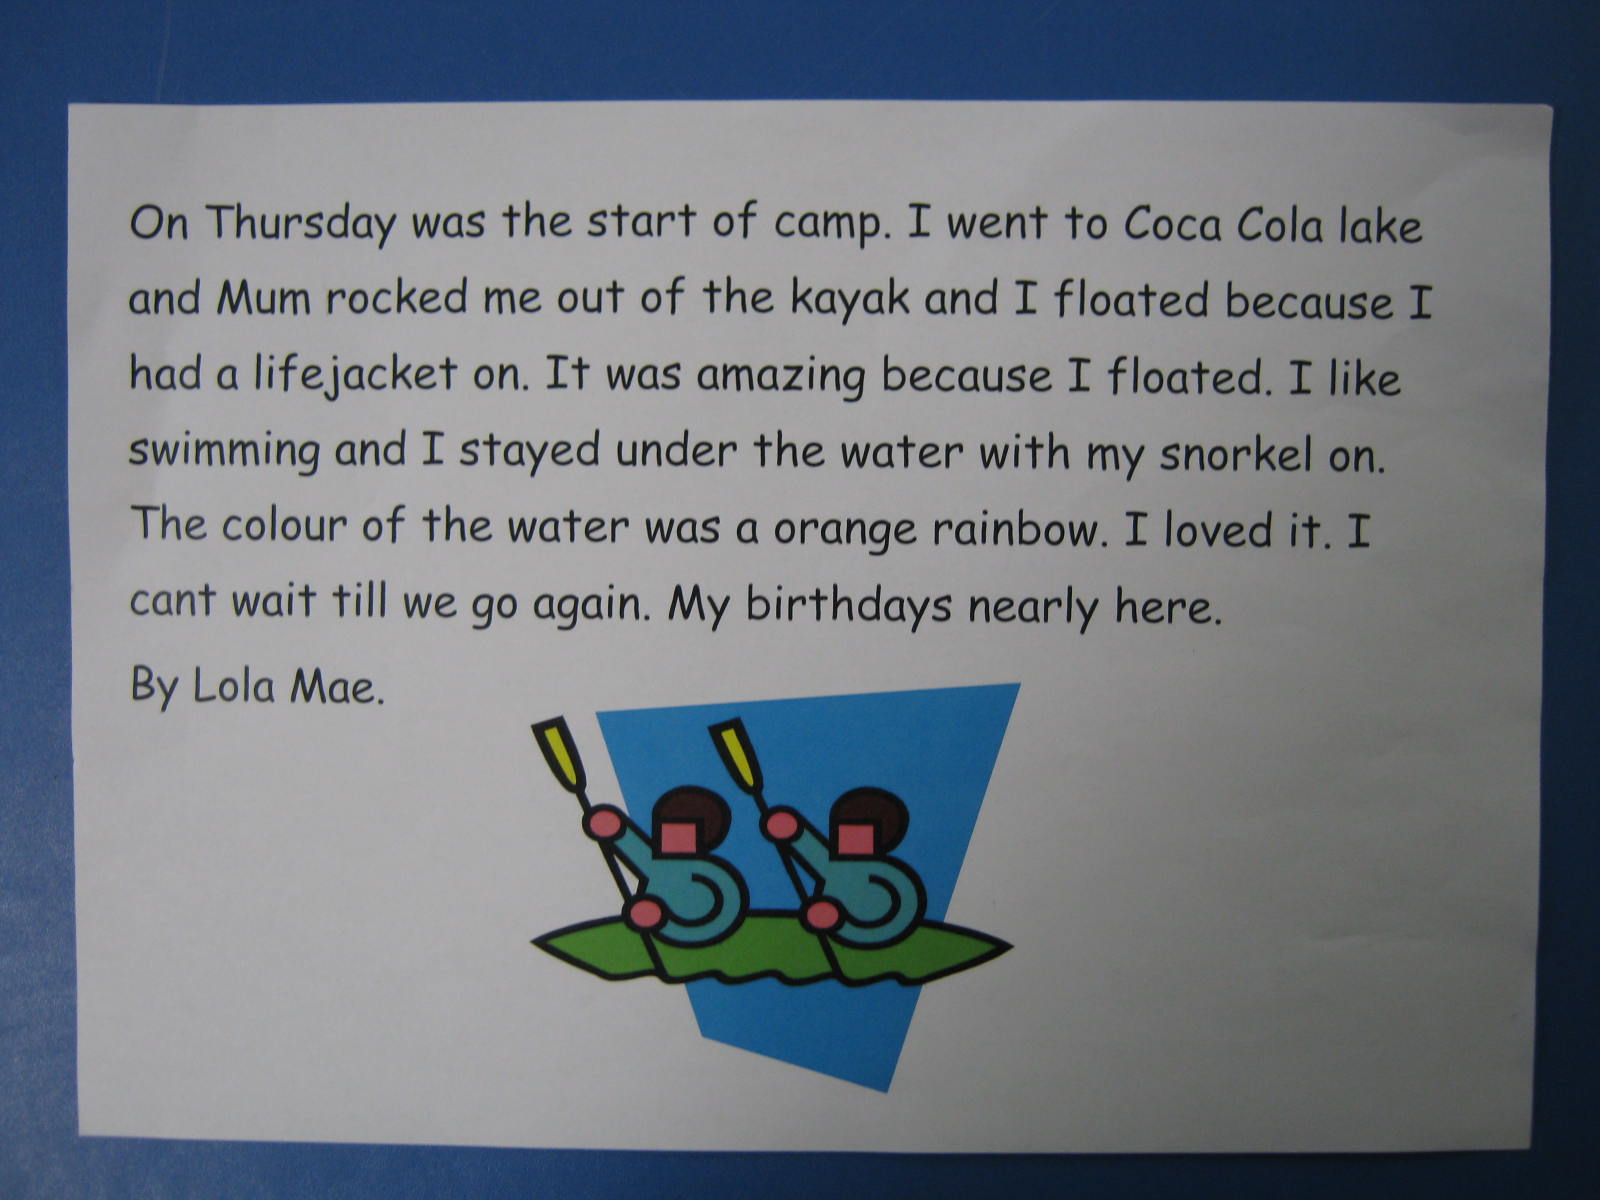 On Thursday was the start of camp. I went to Coca Cola lake
and Mum rocked me out of the kayak and I floated because I
had a lifejacket on. It was amazing because I floated. I like
swimming and I stayed under the water with my snorkel on.
The colour of the water was a orange rainbow. I loved it. I
cant wait till we go again. My birthdays nearly here.
By Lola Mae.